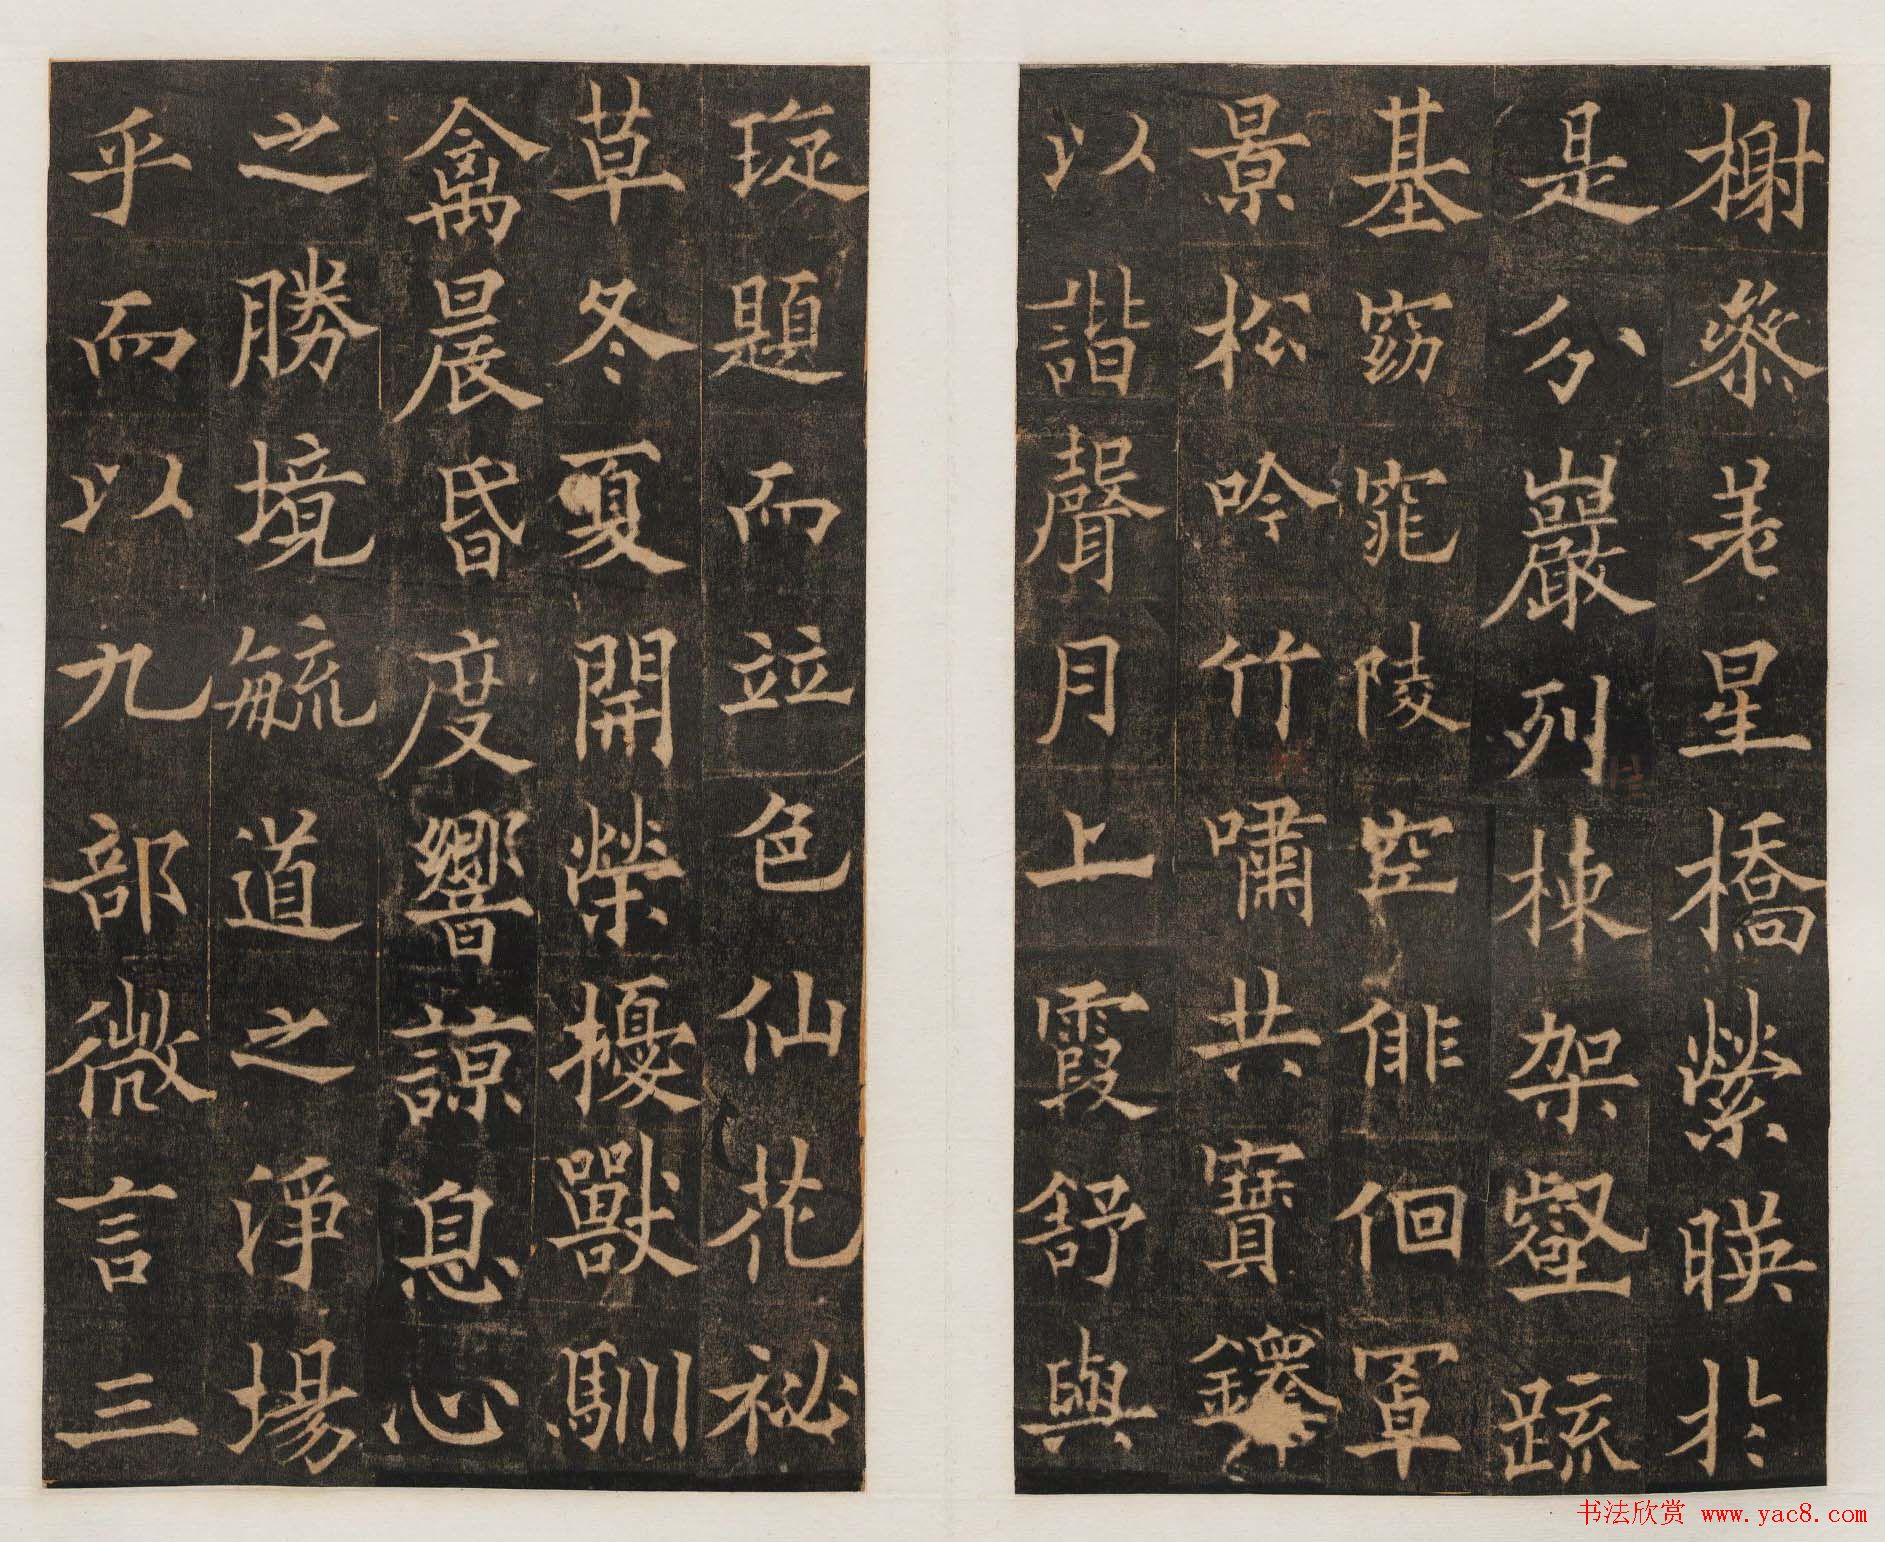 榭叅差星橋縈暎於
是分巖列棟架壑疏
基窈窕陵空俳佪罩
景松吟竹嘯共寶鐸
以諧聲月上霞舒與
琁題而竝色仙花祕
草冬夏開榮擾獸馴
禽晨昏度響諒息心
之勝境毓道之淨場
乎而以九部微言三
书法欣赏 www.yac8.com